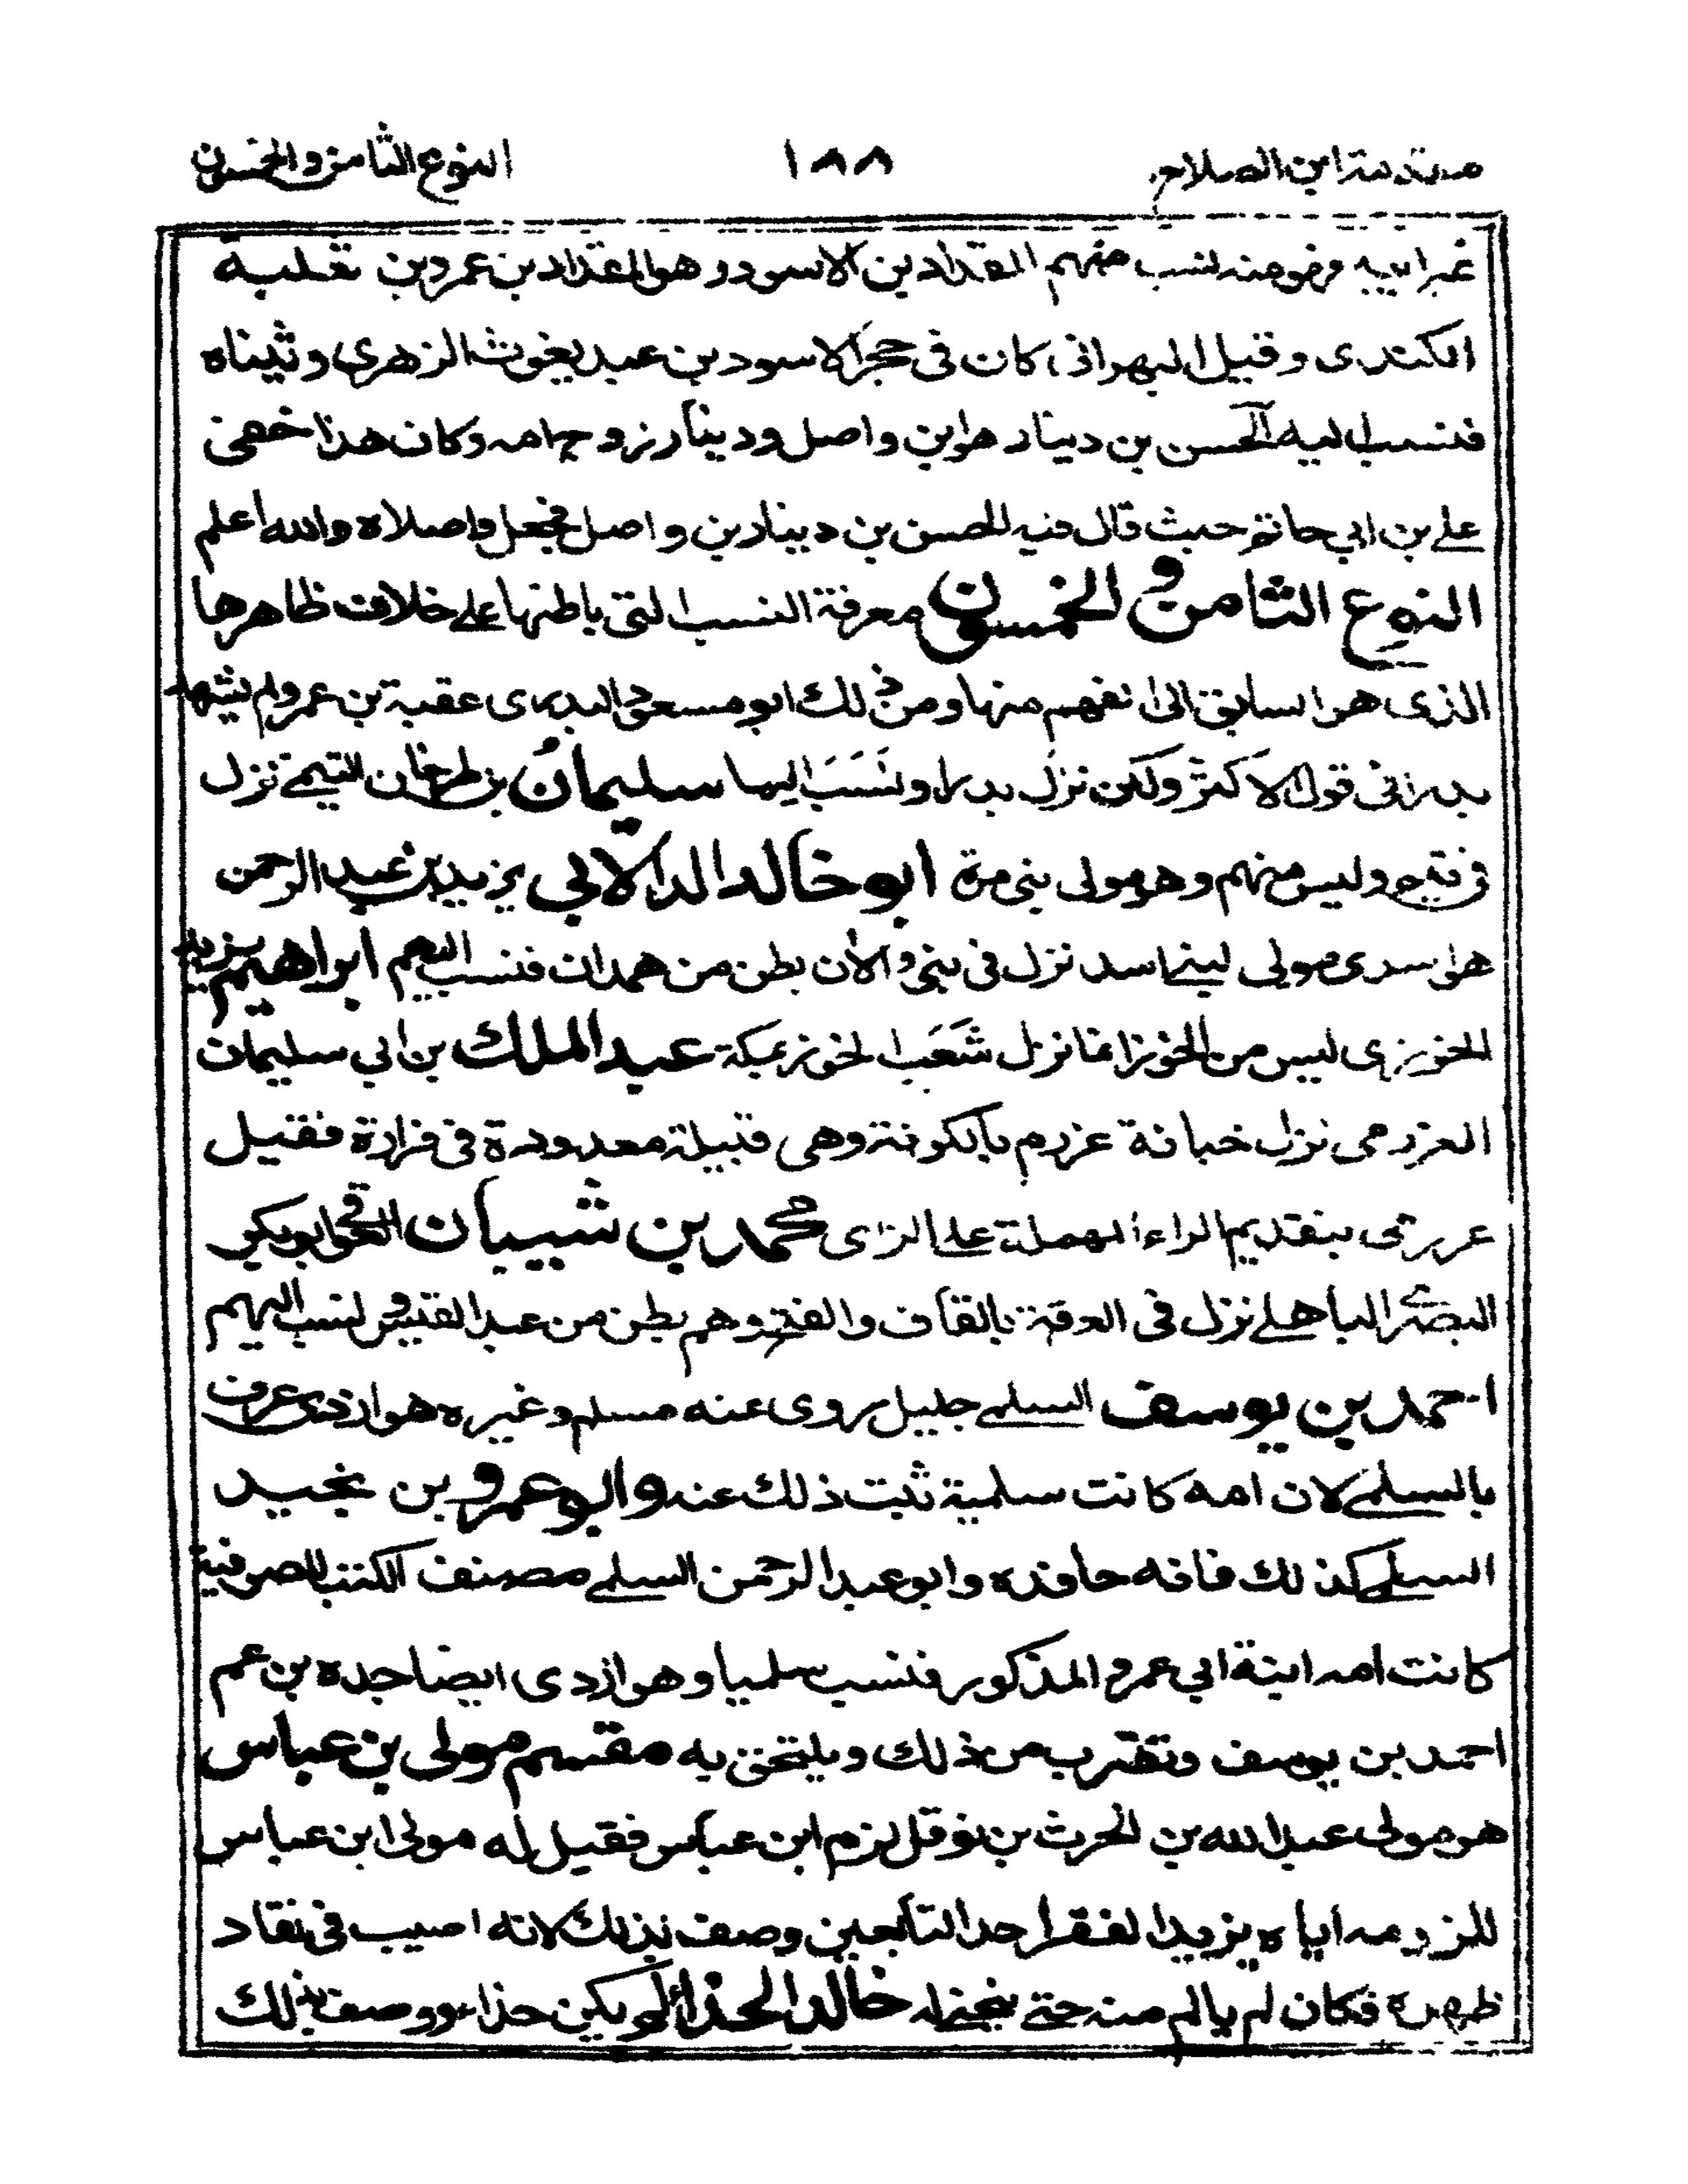 مقدمة ابن الصلاح ١٨٨ النوع الثامن والخمسون
غير ابيه فهو منه نسب منهم المقداد بن الاسود هو المقداد بن عمرو بن ثعلبة
الكندى وقيل البهرانى كان فى حجر الاسود بن عبد يغوث الزهرى وتبناه
فنسب اليه الحسن بن دينار هو ابن واصل ودينار زوج امه وكان هذا خفى
على بن ابي حاتم حيث قال فيه الحسن بن دينار بن واصل فجعل واصلا والله اعلم
النوع الثامن والخمسون معرفة النسب التى باطنها على خلاف ظاهرها
الذى هو السابق الى الفهم منها ومن ذلك ابو مسعود البدرى عقبة بن عمرو لم يشهد
بدرا فى قول الاكثر ولكن نزل بدرا ونسب اليها سليمان بن طرخان التيمى نزل
فى تيم وليس منهم وهو مولى بنى مرة ابو خالد الدالانى يزيد بن عبد الرحمن
هو اسدى مولى لبنى اسد نزل فى بنى دالان بطن من همدان فنسب اليهم ابراهيم بن يزيد
الخوزى ليس من الخوز انما نزل شعب الخوز بمكة عبد الملك بن ابي سليمان
العزرمى نزل جبانة عزرم بالكوفة وهى قبيلة معدودة فى فزارة فقيل
عرزمى بتقديم الراء المهملة على الزاى محمد بن سنان العوقى ابو بكر
البصرى الباهلى نزل فى العوقة بالقاف والفتح وهم بطن من عبد القيس فنسب اليهم
احمد بن يوسف السلمى جليل روى عنه مسلم وغيره هو ازدى عرف
بالسلمى لان امه كانت سلمية ثبت ذلك عنه وابو عمرو بن نجيد
السلمى كذلك فانه حافده وابو عبد الرحمن السلمى مصنف الكتب للصوفية
كانت امه ابنة ابي عمرو المذكور فنسب سلميا وهو ازدى ايضا جده بن عم
احمد بن يوسف وتقرب من ذلك ويلتحق به مقسم مولى بن عباس
هو مولى عبد الله بن الحرث بن نوفل لزم ابن عباس فقيل له مولى ابن عباس
للزومه اياه يزيد الفقير احد التابعين وصف بذلك لانه اصيب فى فقار
ظهره فكان لم يالم منه حتى ينحنى له خالد الحذاء لم يكن حذاء ووصف بذلك